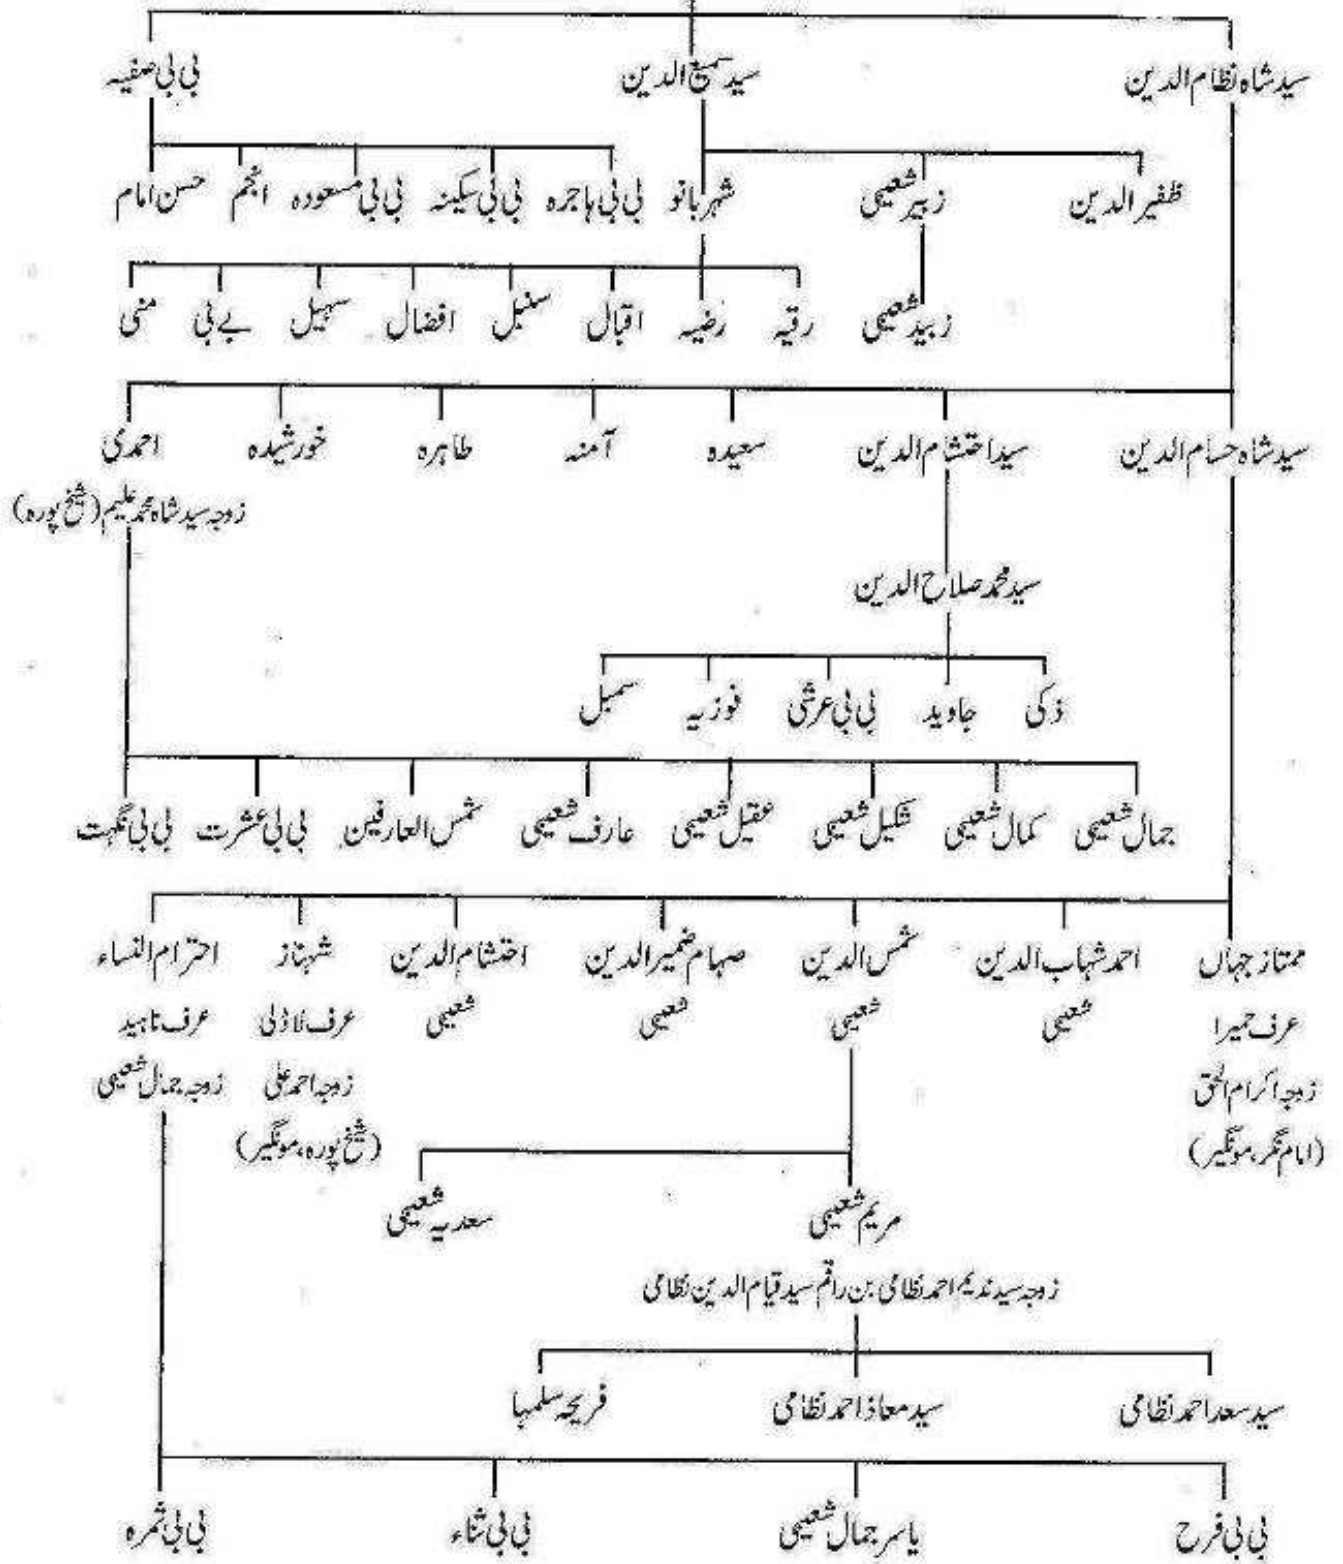 سید شاہ نظام الدین سید سمیع الدین بی بی صفیہ
ظفیر الدین زبیر شعیبی شہر بانو بی بی ہاجرہ بی بی سکینہ بی بی مسعودہ انجم حسن امام
زبید شعیبی رقیہ رضیہ اقبال سنبل افضال سہیل بے بی منی
سید شاہ حسام الدین سید احتشام الدین سعیدہ آمنہ طاہرہ خورشیدہ احمدی
زوجہ سید شاہ محمد علیم (شیخ پورہ)
سید محمد صلاح الدین
ذکی جاوید بی بی عرشی فوزیہ سمبل
جمال شعیبی کمال شعیبی شکیل شعیبی عقیل شعیبی عارف شعیبی شمس العارفین بی بی عشرت بی بی نگہت
ممتاز جہاں احمد شہاب الدین شمس الدین صہام ضمیر الدین احتشام الدین شہناز احترام النساء
عرف حمیرا شعیبی شعیبی شعیبی شعیبی عرف لاڈلی عرف ناہید
زوجہ اکرام الحق زوجہ احمد علی زوجہ جمال شعیبی
(امام نگر، مونگیر) (شیخ پورہ، مونگیر)
مریم شعیبی سعدیہ شعیبی
زوجہ سید ندیم احمد نظامی بن راقم سید قیام الدین نظامی
سید سعد احمد نظامی سید معاذ احمد نظامی فریحہ سلمہا
بی بی فرح یاسر جمال شعیبی بی بی ثناء بی بی ثمرہ